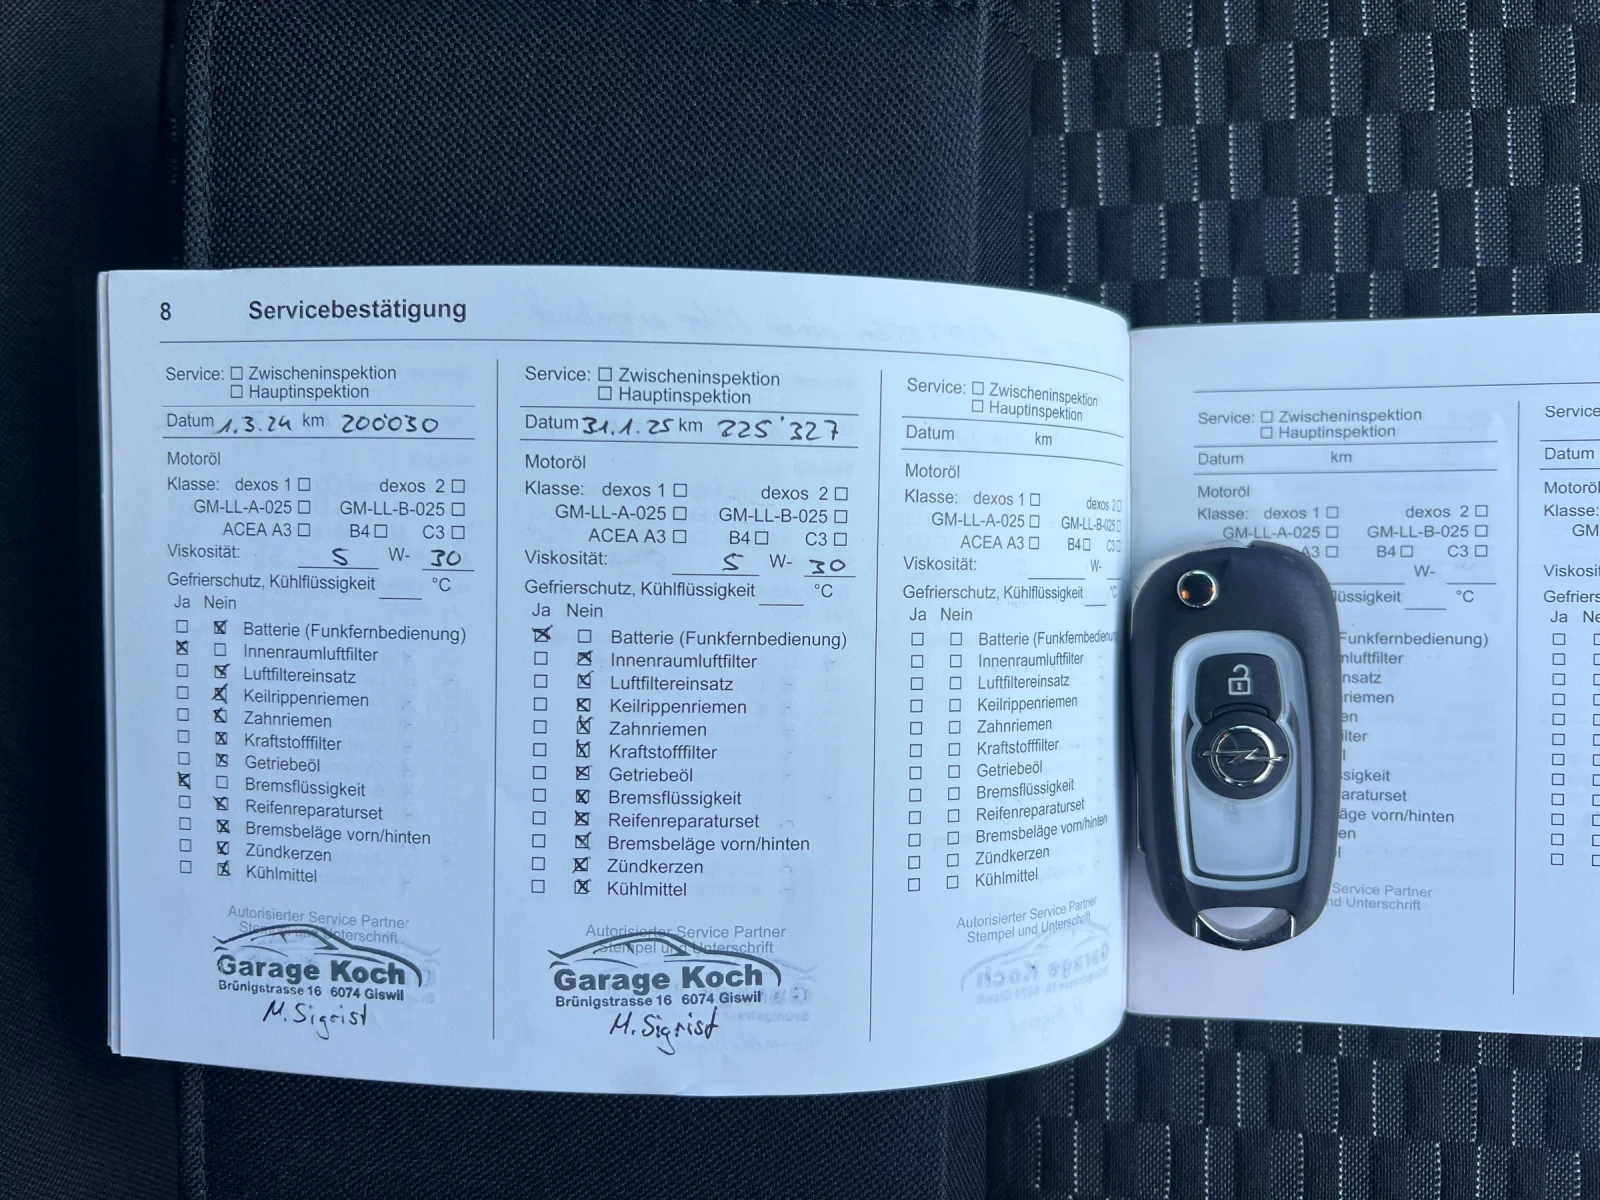 8 Servicebestätigung
Service: ☐ Zwischeninspektion
☐ Hauptinspektion
Datum 1.3.24 km 200'030
Motoröl
Klasse: dexos 1 ☐ dexos 2 ☐
GM-LL-A-025 ☐ GM-LL-B-025 ☐
ACEA A3 ☐ B4 ☐ C3 ☐
Viskosität: 5 W- 30
Gefrierschutz, Kühlflüssigkeit ____ °C
Ja Nein
☐ ☒ Batterie (Funkfernbedienung)
☒ ☐ Innenraumluftfilter
☐ ☒ Luftfiltereinsatz
☐ ☒ Keilrippenriemen
☐ ☒ Zahnriemen
☐ ☒ Kraftstofffilter
☐ ☒ Getriebeöl
☒ ☐ Bremsflüssigkeit
☐ ☒ Reifenreparaturset
☐ ☒ Bremsbeläge vorn/hinten
☐ ☒ Zündkerzen
☐ ☒ Kühlmittel
Autorisierter Service Partner
Stempel und Unterschrift
Garage Koch
Brünigstrasse 16 6074 Giswil
M. Sigrist
Service: ☐ Zwischeninspektion
☐ Hauptinspektion
Datum 31.1.25 km 225'327
Motoröl
Klasse: dexos 1 ☐ dexos 2 ☐
GM-LL-A-025 ☐ GM-LL-B-025 ☐
ACEA A3 ☐ B4 ☐ C3 ☐
Viskosität: 5 W- 30
Gefrierschutz, Kühlflüssigkeit ____ °C
Ja Nein
☒ ☐ Batterie (Funkfernbedienung)
☐ ☒ Innenraumluftfilter
☐ ☒ Luftfiltereinsatz
☐ ☒ Keilrippenriemen
☐ ☒ Zahnriemen
☐ ☒ Kraftstofffilter
☐ ☒ Getriebeöl
☐ ☒ Bremsflüssigkeit
☐ ☒ Reifenreparaturset
☐ ☒ Bremsbeläge vorn/hinten
☐ ☒ Zündkerzen
☐ ☒ Kühlmittel
Autorisierter Service Partner
Stempel und Unterschrift
Garage Koch
Brünigstrasse 16 6074 Giswil
M. Sigrist
Service: ☐ Zwischeninspektion
☐ Hauptinspektion
Datum km
Motoröl
Klasse: dexos 1 ☐ dexos 2 ☐
GM-LL-A-025 ☐ GM-LL-B-025 ☐
ACEA A3 ☐ B4 ☐ C3 ☐
Viskosität: ____ W-
Gefrierschutz, Kühlflüssigkeit ____ °C
Ja Nein
☐ ☐ Batterie (Funkfernbedienung
☐ ☐ Innenraumluftfilter
☐ ☐ Luftfiltereinsatz
☐ ☐ Keilrippenriemen
☐ ☐ Zahnriemen
☐ ☐ Kraftstofffilter
☐ ☐ Getriebeöl
☐ ☐ Bremsflüssigkeit
☐ ☐ Reifenreparaturset
☐ ☐ Bremsbeläge vorn/hinten
☐ ☐ Zündkerzen
☐ ☐ Kühlmittel
Autorisierter Service Partner
Stempel und Unterschrift
Service: ☐ Zwischeninspektion
☐ Hauptinspektion
Datum km
Motoröl
Klasse: dexos 1 ☐ dexos 2 ☐
GM-LL-A-025 ☐ GM-LL-B-025 ☐
A3 ☐ B4 ☐ C3 ☐
W- ____
lüssigkeit ____ °C
Funkfernbedienung)
mluftfilter
nsatz
riemen
en
ilter
l
sigkeit
araturset
äge vorn/hinten
en
l
Service Partner
nd Unterschrift
Service
Datum
Motoröl
Klasse:
GM-
Viskosit
Gefriers
Ja Ne